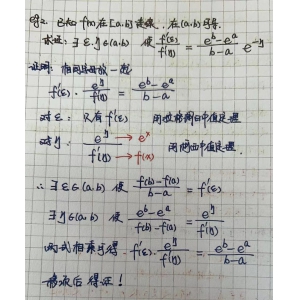 eg2. 已知 f(x) 在 [a,b] 连续, 在 (a,b) 可导.
求证: ∃ ξ,η∈(a,b) 使 f'(ξ)/f'(η) = (e^b-e^a)/(b-a) e^{-η}
证明: 相同字母放一起
f'(ξ)· e^η/f'(η) = (e^b-e^a)/(b-a)
对ξ: 只有 f'(ξ) 用拉格朗日中值定理
对η: e^η/f'(η) → e^x → f(x) 用柯西中值定理.
∴ ∃ ξ∈(a,b) 使 (f(b)-f(a))/(b-a) = f'(ξ)
∃ η∈(a,b) 使 (e^b-e^a)/(f(b)-f(a)) = e^η/f'(η)
两式相乘可得 f'(ξ)· e^η/f'(η) = (e^b-e^a)/(b-a)
移项后得证!